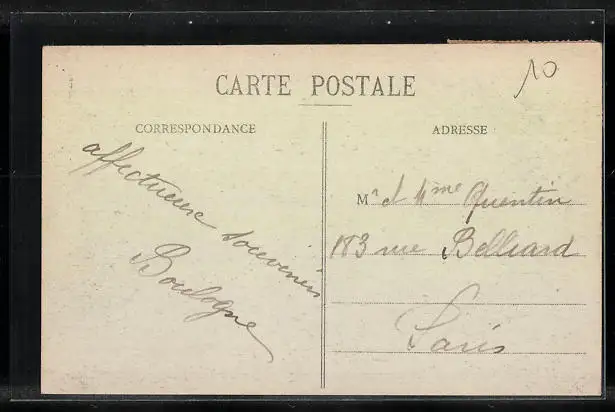 10
CARTE POSTALE
CORRESPONDANCE
affectueux souvenirs
Boulogne
ADRESSE
Mr et Mme Quentin
183 rue Belliard
Paris